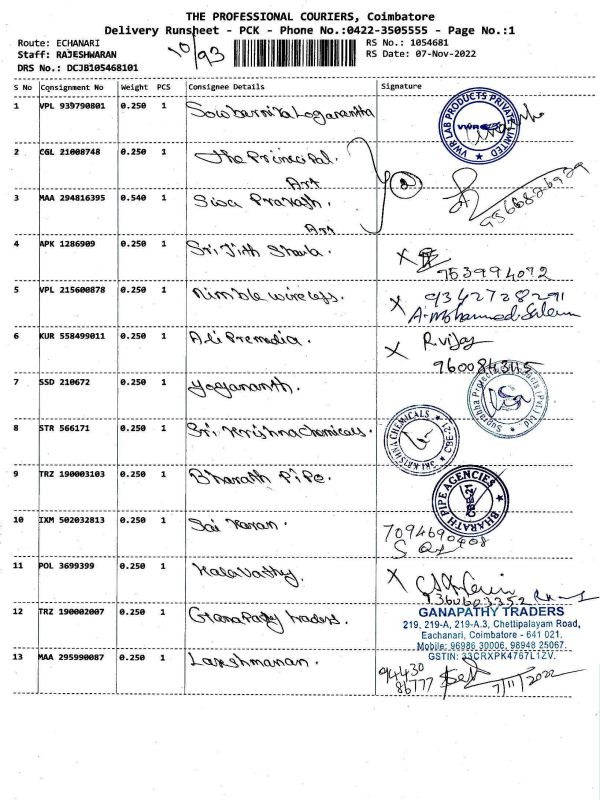 THE PROFESSIONAL COURIERS, Coimbatore
Delivery Runsheet - PCK - Phone No.:0422-3505555 - Page No.:1
Route: ECHANARI
RS No.: 1054681
Staff: RAJESHWARAN
RS Date: 07-Nov-2022
DRS No.: DCJB105468101
10/93
S No Consignment No Weight PCS Consignee Details Signature
1 VPL 939790801 0.250 1 Sowbarnika Loganantha
VWR LAB PRODUCTS PRIVATE LIMITED
vwr
2 CGL 21008748 0.250 1 The Principal.
Art
2
3 MAA 294816395 0.540 1 Siva Prakash.
Art
9566826929
4 APK 1286909 0.250 1 Sri Jith
X
753994092
5 VPL 215600878 0.250 1 Nimble wireless.
X 9342728291
A. Mohammed Saleem
6 KUR 558499011 0.250 1 Ali Premedia.
X R. vijay
9600843115
7 SSD 210672 0.250 1 Yogananth.
8 STR 566171 0.250 1 Sri Krishna Chemicals.
SRI KRISHNA CHEMICALS CBE-21
9 TRZ 190003103 0.250 1 Bharath Pipe.
BHARATH PIPE AGENCIES CBE-21
10 IXM 502032813 0.250 1 Sai
7094690408
11 POL 3699399 0.250 1 Kalavathy.
X
9360603352
12 TRZ 190002007 0.250 1 Ganapathy traders.
GANAPATHY TRADERS
219, 219-A, 219-A.3, Chettipalayam Road,
Eachanari, Coimbatore - 641 021.
Mobile: 96986 30006, 98948 25067.
GSTIN: 33CRXPK4767L1ZV.
13 MAA 295990087 0.250 1 Lakshmanan.
94430
86777
7/11/2022